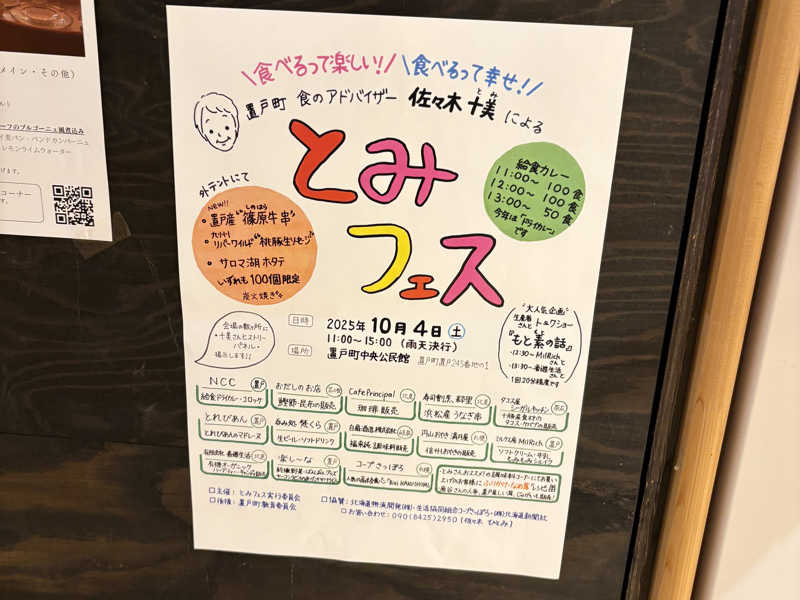 \食べるって楽しい!/ \食べるって幸せ!/
置戸町 食のアドバイザー 佐々木十美による
とみ
とみ
フェス
給食カレー
11:00~ 100食
12:00~ 100食
13:00~ 50食
今年は「ドライカレー」
です
外テントにて
NEW!!
しのはら
・置戸産"篠原牛串"
・リバーワイルド"桃豚生ソーセージ"
・サロマ湖ホタテ
いずれも100個限定
炭火焼き
会場の数ヶ所に
・十美さんヒストリー
パネル・
掲示します!!
日時 2025年10月4日(土)
11:00~15:00 (雨天決行)
場所 置戸町中央公民館 置戸町置戸245番地の1
"大人気企画"
生産者さんとトークショー
『もと素の話』
・12:30~MilRichさんと
・13:30~香遊生活さんと
1回20分程度です
NCC 置戸
給食ドライカレー・コロッケ
おだしのお店
鰹節・昆布の販売
Cafe Principal 北見
珈琲販売
浜松産うなぎ串
タコス屋
シーガルキッチン
とれぴあん 置戸
とれぴあんのマドレーヌ
呑み処 勢くら 置戸
生ビール・ソフトドリンク
白扇酒造株式会社
福来純 調味料販売
円山おやき満月屋 札幌
信州おやきの販売
ミルク工房 MilRich 置戸
ソフトクリーム・牛乳
有限会社 香遊生活 北見
有機オーガニック
楽し~な 置戸
コープさっぽろ 札幌
□主催:とみフェス実行委員会
□後援:置戸町教育委員会
□協賛:北海道物流開発(株)・生活協同組合コープさっぽろ・(株)北海道新聞社
□お問い合わせ:090(8425)2950(佐々木 ひとみ)
メイン・その他)
ーフのブルゴーニュ風煮込み
イ麦パン・パンドカンパーニュ
レモンライムウォーター
コーナー